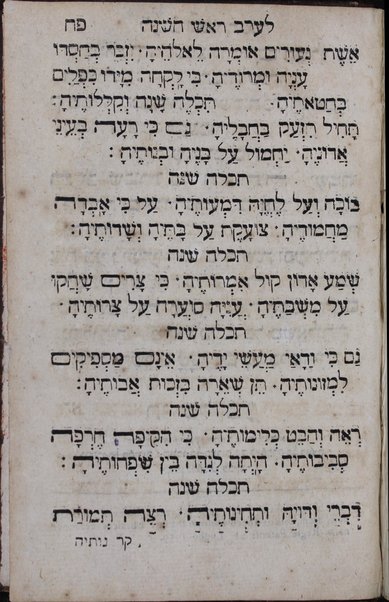 לערב ראש השנה פח
אֵשֶׁת נְעוּרִים אוֹמְרָה לֵאלֹהֶיהָ׃ יִזְכֹּר בְּחַסְדּוֹ
עָנְיָהּ וּמְרוּדֶיהָ׃ כִּי לָקְחָה מִיָּדוֹ כִּפְלַיִם
בְּחַטֹּאתֶיהָ׃ תִּכְלֶה שָׁנָה וְקִלְלוֹתֶיהָ׃
תָּחִיל תִּזְעַק בַּחֲבָלֶיהָ׃ גַם כִּי רָעָה בְּעֵינֵי
אֲדוֹנֶיהָ׃ יַחְמוֹל עַל בָּנֶיהָ וּבְנוֹתֶיהָ׃
תכלה שנה
בּוֹכָה וְעַל לֶחֱיָהּ דִּמְעוֹתֶיהָ׃ עַל כִּי אָבְדָה
מַחֲמוּדֶיהָ׃ צוֹעֶקֶת עַל בָּתֶּיהָ וְשָׂדוֹתֶיהָ׃
תכלה שנה
שְׁמַע אָדוֹן קוֹל אִמְרוֹתֶיהָ׃ כִּי צָרִים שָׂחֲקוּ
עַל מִשְׁבַּתֶּיהָ׃ עֲנִיָּה סוֹעֲרָה עַל צָרוֹתֶיהָ׃
תכלה שנה
גַם כִּי וַדַּאי מַעֲשֵׂי יָדֶיהָ׃ אֵינָם מַסְפִּיקִים
לִמְזוֹנוֹתֶיהָ׃ תֵּן שְׁאֵרָהּ בִּזְכוּת אֲבוֹתֶיהָ׃
תכלה שנה
רְאֵה וְהַבֵּט כְּלִימוֹתֶיהָ׃ כִּי הִקִּיפָהּ חֶרְפָּה
סְבִיבוֹתֶיהָ׃ הָיְתָה לְנִדָּה בֵּין שִׁפְחוֹתֶיהָ׃
תכלה שנה
דִּבְרֵי וִדּוּיָהּ וּתְחִינוֹתֶיהָ׃ רְצֵה תְמוּרַת
קרבנותיה